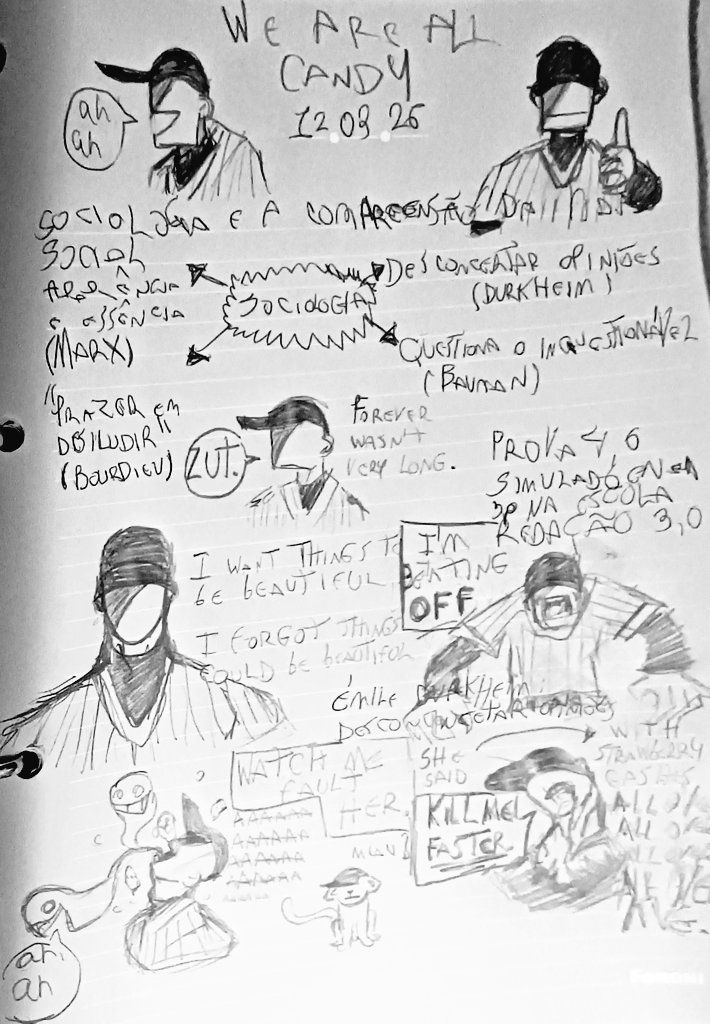 WE ARE ALL
CANDY
12.03.26
ah
ah
SOCIOLOGIA E A COMPREENSÃO DA
SOCIAL
APARÊNCIA
E ESSÊNCIA
(MARX)
SOCIOLOGIA
DESCONCERTAR OPINIÕES
(DURKHEIM)
QUESTIONA O INQUESTIONÁVEL
(BAUMAN)
"PRAZER EM
DESILUDIR"
(BOURDIEU)
ZUT.
FOREVER
WASN'T
VERY LONG.
PROVA 4,6
SIMULADO
NA ESCOLA
REDAÇÃO 3,0
I WANT THINGS TO
BE BEAUTIFUL
I FORGOT THINGS
COULD BE BEAUTIFUL
I'M
BEATING
OFF
ÉMILE DURKHEIM:
OPINIÕES
WATCH ME
FAULT
HER.
AAAAAA
AAAAAA
AAAAAA
AAAAAA
SHE
SAID
KILL ME
FASTER
WITH
STRAWBERRY
GASHES
ALL OVER
ALL OVER
ALL OVER
ah
ah